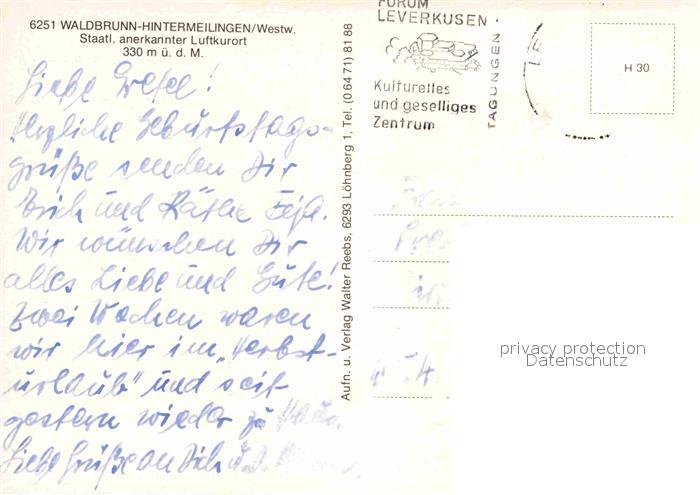 6251 WALDBRUNN-HINTERMEILINGEN/Westw.
Staatl. anerkannter Luftkurort
330 m ü. d. M.
Liebe
Herzliche Geburtstags-
grüße senden Dir
Erich und Käthe
Wir wünschen Dir
alles Liebe und Gute!
Zwei Wochen waren
wir hier im „Herbst-
urlaub" und seit
gestern wieder zu
Liebe Grüße an Dich u.
Aufn. u. Verlag Walter Reebs, 6293 Löhnberg 1, Tel. (0 64 71) 81 88
FORUM
LEVERKUSEN
Kulturelles
und geselliges
Zentrum
TAGUNGEN
LE
H 30
privacy protection
Datenschutz